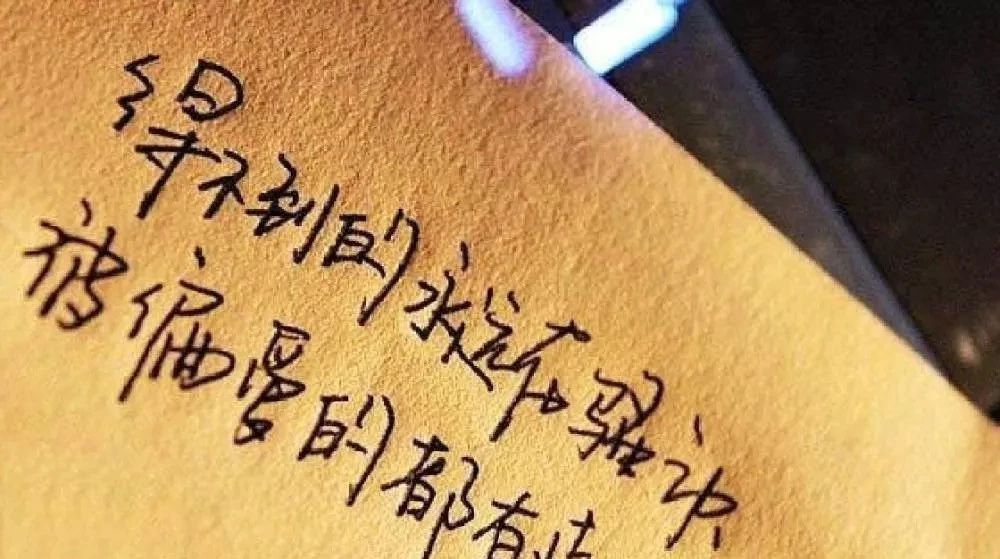 得不到的永远在骚动
被偏爱的都有